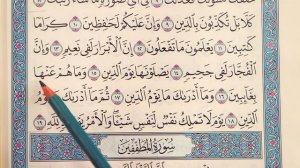 كَلَّا بَلْ تُكَذِّبُونَ بِٱلدِّينِ ٩ وَإِنَّ عَلَيْكُمْ لَحَٰفِظِينَ ١٠ كِرَامًا
كَٰتِبِينَ ١١ يَعْلَمُونَ مَا تَفْعَلُونَ ١٢ إِنَّ ٱلْأَبْرَارَ لَفِى نَعِيمٍ ١٣ وَإِنَّ
ٱلْفُجَّارَ لَفِى جَحِيمٍ ١٤ يَصْلَوْنَهَا يَوْمَ ٱلدِّينِ ١٥ وَمَا هُمْ عَنْهَا
بِغَآئِبِينَ ١٦ وَمَآ أَدْرَىٰكَ مَا يَوْمُ ٱلدِّينِ ١٧ ثُمَّ مَآ أَدْرَىٰكَ مَا يَوْمُ
ٱلدِّينِ ١٨ يَوْمَ لَا تَمْلِكُ نَفْسٌ لِّنَفْسٍ شَيْـًٔا وَٱلْأَمْرُ يَوْمَئِذٍ لِّلَّهِ ١٩
سُورَةُ ٱلْمُطَفِّفِينَ